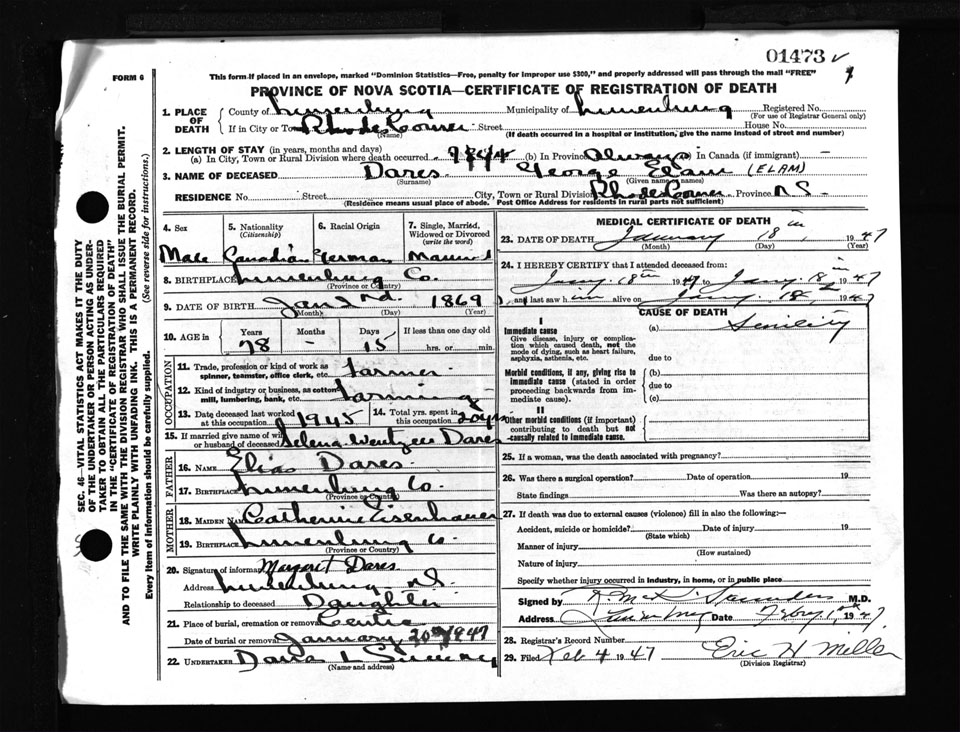 01473
FORM 6
This form if placed in an envelope, marked "Dominion Statistics—Free, penalty for improper use $300," and properly addressed will pass through the mail "FREE"
PROVINCE OF NOVA SCOTIA—CERTIFICATE OF REGISTRATION OF DEATH
1. PLACE OF DEATH
County of Lunenburg Municipality of Lunenburg Registered No.
(For use of Registrar General only)
If in City or Town Rhodes Corner Street House No.
(Name) (If death occurred in a hospital or institution, give the name instead of street and number)
2. LENGTH OF STAY (in years, months and days)
(a) In City, Town or Rural Division where death occurred (b) In Province Always (c) In Canada (if immigrant) —
3. NAME OF DECEASED Dares George Elam (ELAM)
(Surname) (Given names)
RESIDENCE No. Street City, Town or Rural Division Rhodes Corner Province N S
(Residence means usual place of abode. Post Office Address for residents in rural parts not sufficient)
4. Sex
5. Nationality (Citizenship)
6. Racial Origin
7. Single, Married, Widowed or Divorced (write the word)
Male Canadian German Married
8. BIRTHPLACE Lunenburg Co.
(Province or Country)
9. DATE OF BIRTH Jan 3rd. 1869
(Month) (Day) (Year)
10. AGE in Years Months Days If less than one day old
78 — 15 hrs. or min.
OCCUPATION
11. Trade, profession or kind of work as spinner, teamster, office clerk, etc. Farmer
12. Kind of industry or business, as cotton mill, lumbering, bank, etc. Farming
13. Date deceased last worked at this occupation 1945
14. Total yrs. spent in this occupation
15. If married give name of wife or husband of deceased Selena Wentzell Dares
FATHER
16. NAME Elias Dares
17. BIRTHPLACE Lunenburg Co.
(Province or Country)
MOTHER
18. MAIDEN NAME Catherine Eisenhauer
19. BIRTHPLACE Lunenburg Co.
(Province or Country)
20. Signature of informant Margaret Dares
Address Lunenburg N.S.
Relationship to deceased Daughter
21. Place of burial, cremation or removal
Date of burial or removal January, 20th 1947
22. UNDERTAKER
(Name and address)
MEDICAL CERTIFICATE OF DEATH
23. DATE OF DEATH January 18th, 1947
(Month) (Day) (Year)
24. I HEREBY CERTIFY that I attended deceased from:
Jany. 18th 1947 to Jany. 18th 1947
and last saw him alive on Jany. 18th, 1947
CAUSE OF DEATH
I
Immediate cause
Give disease, injury or complication which caused death, not the mode of dying, such as heart failure, asphyxia, asthenia, etc.
(a) Senility
due to
Morbid conditions, if any, giving rise to immediate cause (stated in order proceeding backwards from immediate cause).
(b)
due to
(c)
II
Other morbid conditions (if important) contributing to death but not causally related to immediate cause.
25. If a woman, was the death associated with pregnancy?
26. Was there a surgical operation? Date of operation 19
State findings Was there an autopsy?
27. If death was due to external causes (violence) fill in also the following:—
Accident, suicide or homicide? Date of injury 19
(State which)
Manner of injury
(How sustained)
Nature of injury
Specify whether injury occurred in industry, in home, or in public place
Signed by Saunders M.D.
Address Date 1947
28. Registrar's Record Number
29. Filed Feb 4 1947 Eric H Miller
(Division Registrar)
SEC. 46—VITAL STATISTICS ACT MAKES IT THE DUTY
OF THE UNDERTAKER OR PERSON ACTING AS UNDERTAKER
TO OBTAIN ALL THE PARTICULARS REQUIRED
IN THE "CERTIFICATE OF REGISTRATION OF DEATH"
AND TO FILE THE SAME WITH THE DIVISION REGISTRAR WHO SHALL ISSUE THE BURIAL PERMIT.
WRITE PLAINLY WITH UNFADING INK. THIS IS A PERMANENT RECORD.
Every item of information should be carefully supplied. (See reverse side for instructions.)